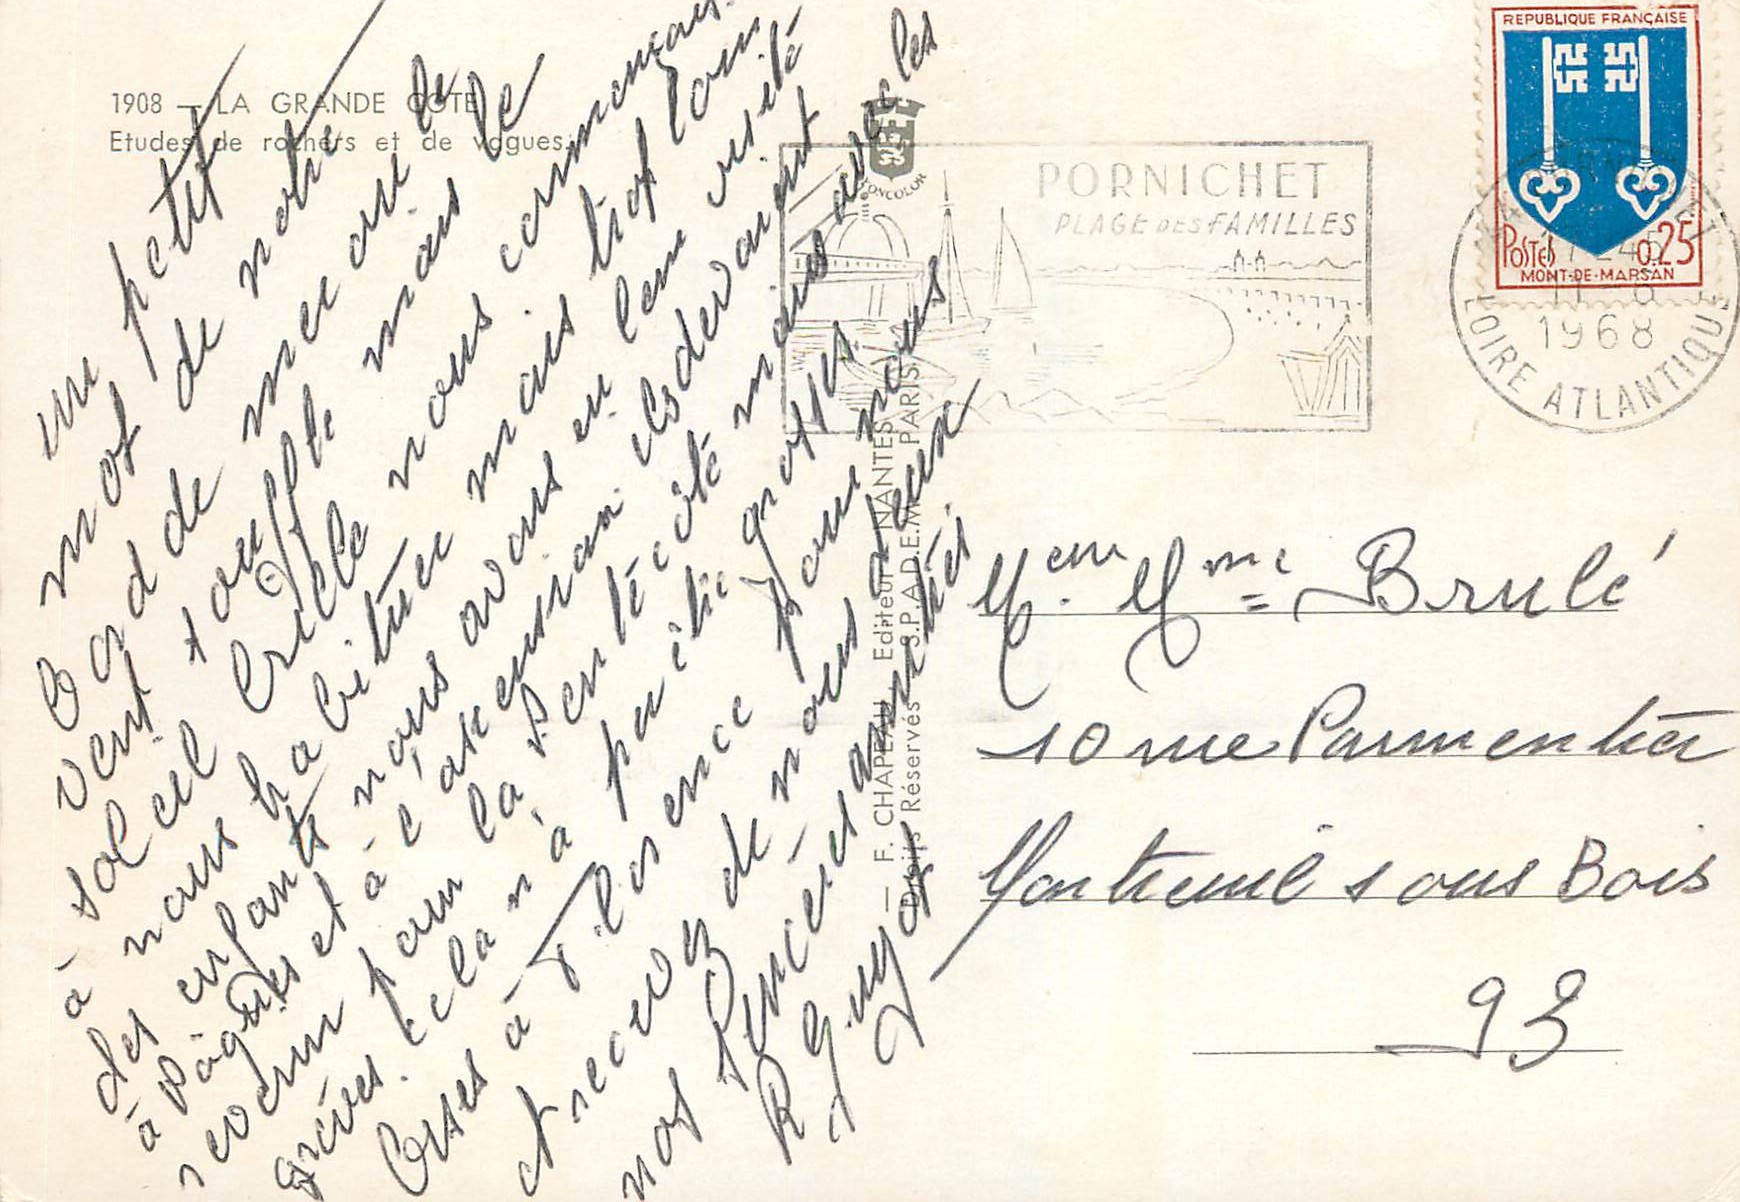 1908 — LA GRANDE COTE
Etudes de rochers et de vagues.
un petit
mot de notre
bord de mer ou le
vent souffle mais le
soleil brille nous commençons
à nous habituer mais trop loin
des enfants nous avons eu leur visite
à Pâques et à l'ascension ils devaient
revenir pour la Pentecôte mais avec les
grèves cela n'a pu être grosses
bises à Florence pour nous
et recevez de nous deux
nos sincères amitiés
R Guyot
— F. CHAPEAU Editeur NANTES
Droits Réservés S.P.A.D.E.M. PARIS
PORNICHET
PLAGE DES FAMILLES
REPUBLIQUE FRANÇAISE
POSTES 0.25
MONT-DE-MARSAN
1968
LOIRE ATLANTIQUE
M. et Mme Brulé
10 rue Parmentier
Montreuil sous Bois
93